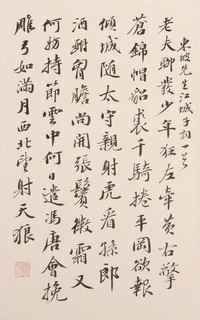 東坡先生江城子詞一首
老夫聊發少年狂左牽黃右擎
蒼錦帽貂裘千騎捲平岡欲報
傾城隨太守親射虎看孫郎
酒酣胸膽尚開張鬢微霜又
何妨持節雲中何日遣馮唐會挽
雕弓如滿月西北望射天狼